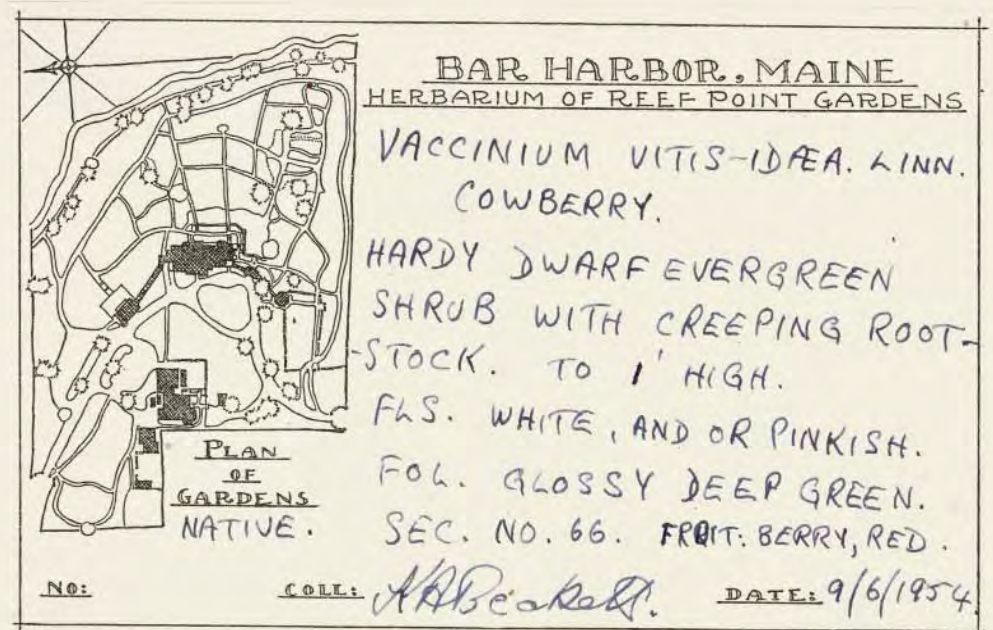 BAR HARBOR, MAINE
HERBARIUM OF REEF POINT GARDENS
VACCINIUM VITIS-IDÆA. LINN.
COWBERRY.
HARDY DWARF EVERGREEN
SHRUB WITH CREEPING ROOT-
-STOCK. TO 1' HIGH.
FLS. WHITE, AND OR PINKISH.
FOL. GLOSSY DEEP GREEN.
SEC. NO. 66. FRUIT: BERRY, RED.
PLAN
OF
GARDENS
NATIVE.
NO:
COLL: K A Beckett.
DATE: 9/6/1954